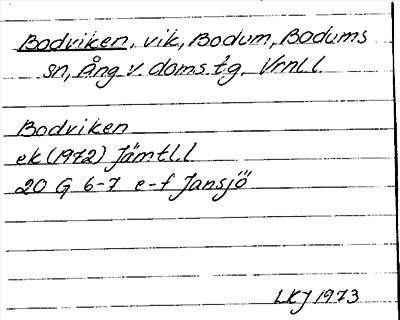 Bodviken, vik, Bodum, Bodums
sn, Ång v doms tg, Vrnl l
Bodviken
ek (1972) Jämtl.l
20 G 6-7 e-f Jansjö
LKJ 1973